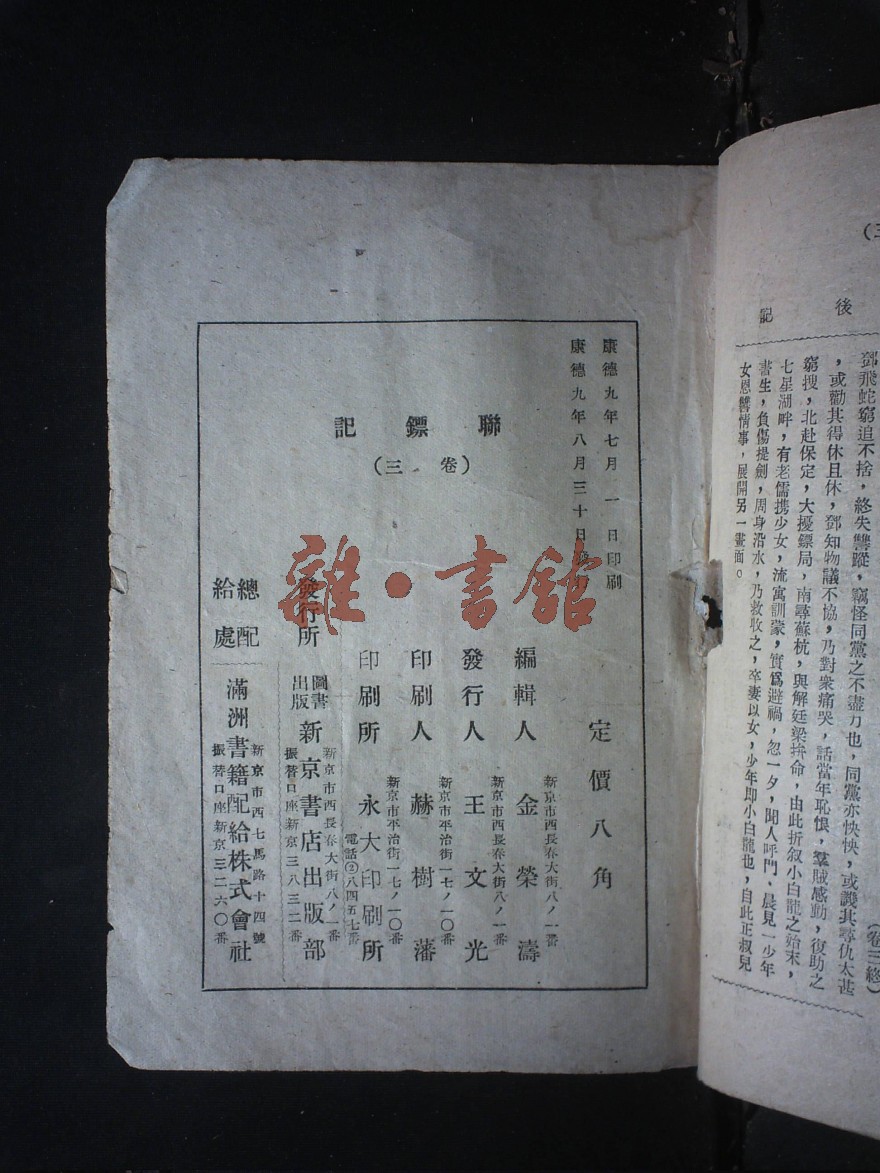 (三
後
記
鄧飛蛇窮追不捨，終失讐蹤，竊怪同黨之不盡力也，同黨亦怏怏，或譏其尋仇太甚
，或勸其得休且休，鄧知物議不協，乃對衆痛哭，話當年恥恨，羣賊感動，復助之
窮搜，北赴保定，大擾鏢局，南尋蘇杭，與解廷梁拚命，由此折叙小白龍之始末，
七星湖畔，有老儒携少女，流寓訓蒙，實爲避禍，忽一夕，聞人呼門，晨見一少年
書生，負傷提劍，周身沿水，乃救收之，卒妻以女，少年即小白龍也，自此正叙兒
女恩讐情事，展開另一畫面。
(卷三終)
康德九年七月一日印刷
康德九年八月三十日發行
聯鏢記
(卷三)
定價八角
編輯人
新京市西長春大街八ノ一番
金榮濤
發行人
新京市西長春大街八ノ一番
王文光
印刷人
新京市平治街一七ノ一〇番
赫樹藩
印刷所
新京市平治街一七ノ一〇番
永大印刷所
電話②八四五七番
發行所
圖書出版
新京市西長春大街八ノ一番
新京書店出版部
振替口座新京三八三二番
總配給處
新京市西七馬路十四號
滿洲書籍配給株式會社
振替口座新京三二六〇番
雜·書館